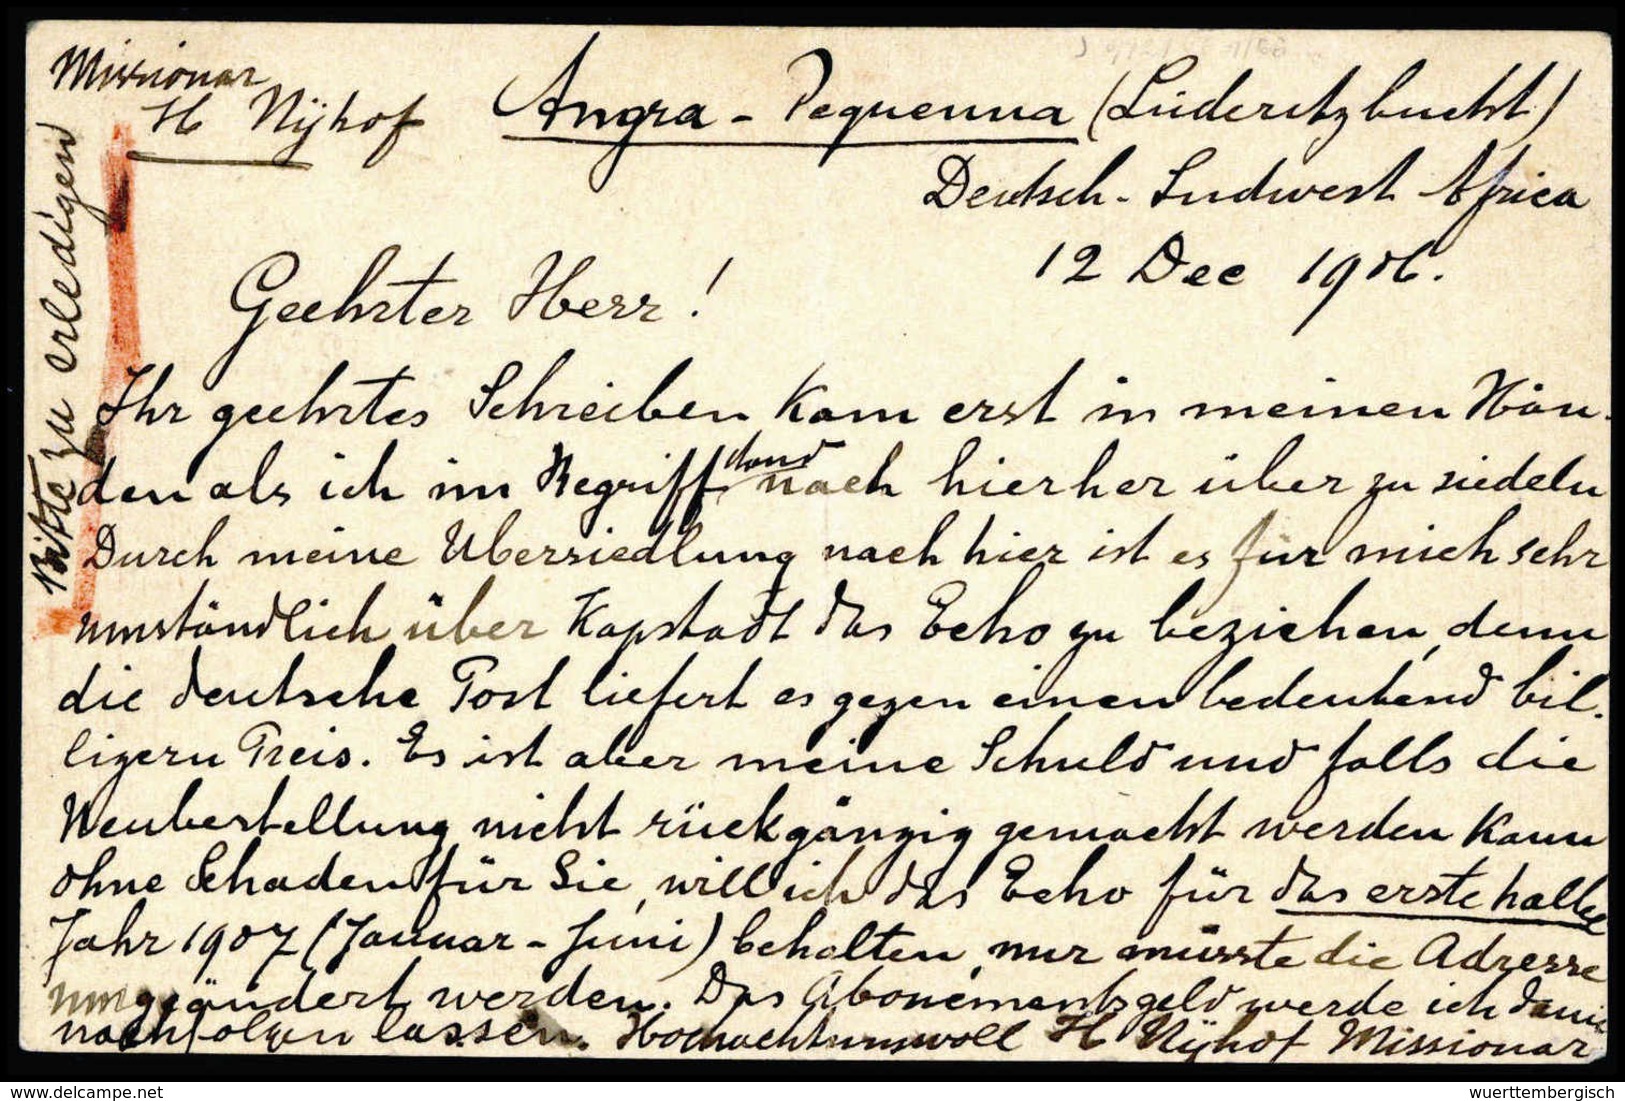 Missionar
H Nijhof
Angra - Pequenna (Lüderitzbucht)
Deutsch - Sudwest Africa
12 Dec 1906.
Bitte zu erledigen
Geehrter Herr!
Ihr geehrtes Schreiben kam erst in meinen Hän-
den als ich im Begriff stand nach hierher über zu siedeln
Durch meine Übersiedlung nach hier ist es für mich sehr
umständlich über Kapstadt das Echo zu beziehen, denn
die deutsche Post liefert es gegen einen bedeutend bil-
ligern Preis. Es ist aber meine Schuld und falls die
Neubestellung nicht rückgängig gemacht werden kann
ohne Schaden für Sie, will ich das Echo für das erste halbe
Jahr 1907 (Januar - Juni) behalten, nur müsste die Adresse
umgeändert werden. Das Abonementsgeld werde ich dann
nachfolgen lassen. Hochachtungsvoll H Nijhof Missionar
www.delcampe.net
wuerttembergisch